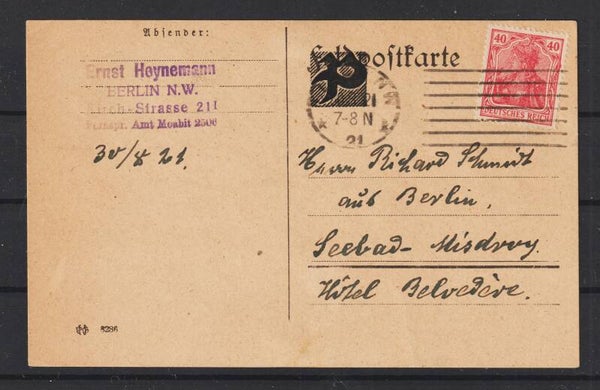 Absender:
Ernst Heynemann
BERLIN N.W.
Strasse 21I
Amt Moabit 2506
30/ 21.
Feldpostkarte
P
7-8 N
21
40 40
DEUTSCHES REICH
Herrn Richard Schmidt
aus Berlin,
Seebad-Misdroy.
Hôtel Belvedère.
5286